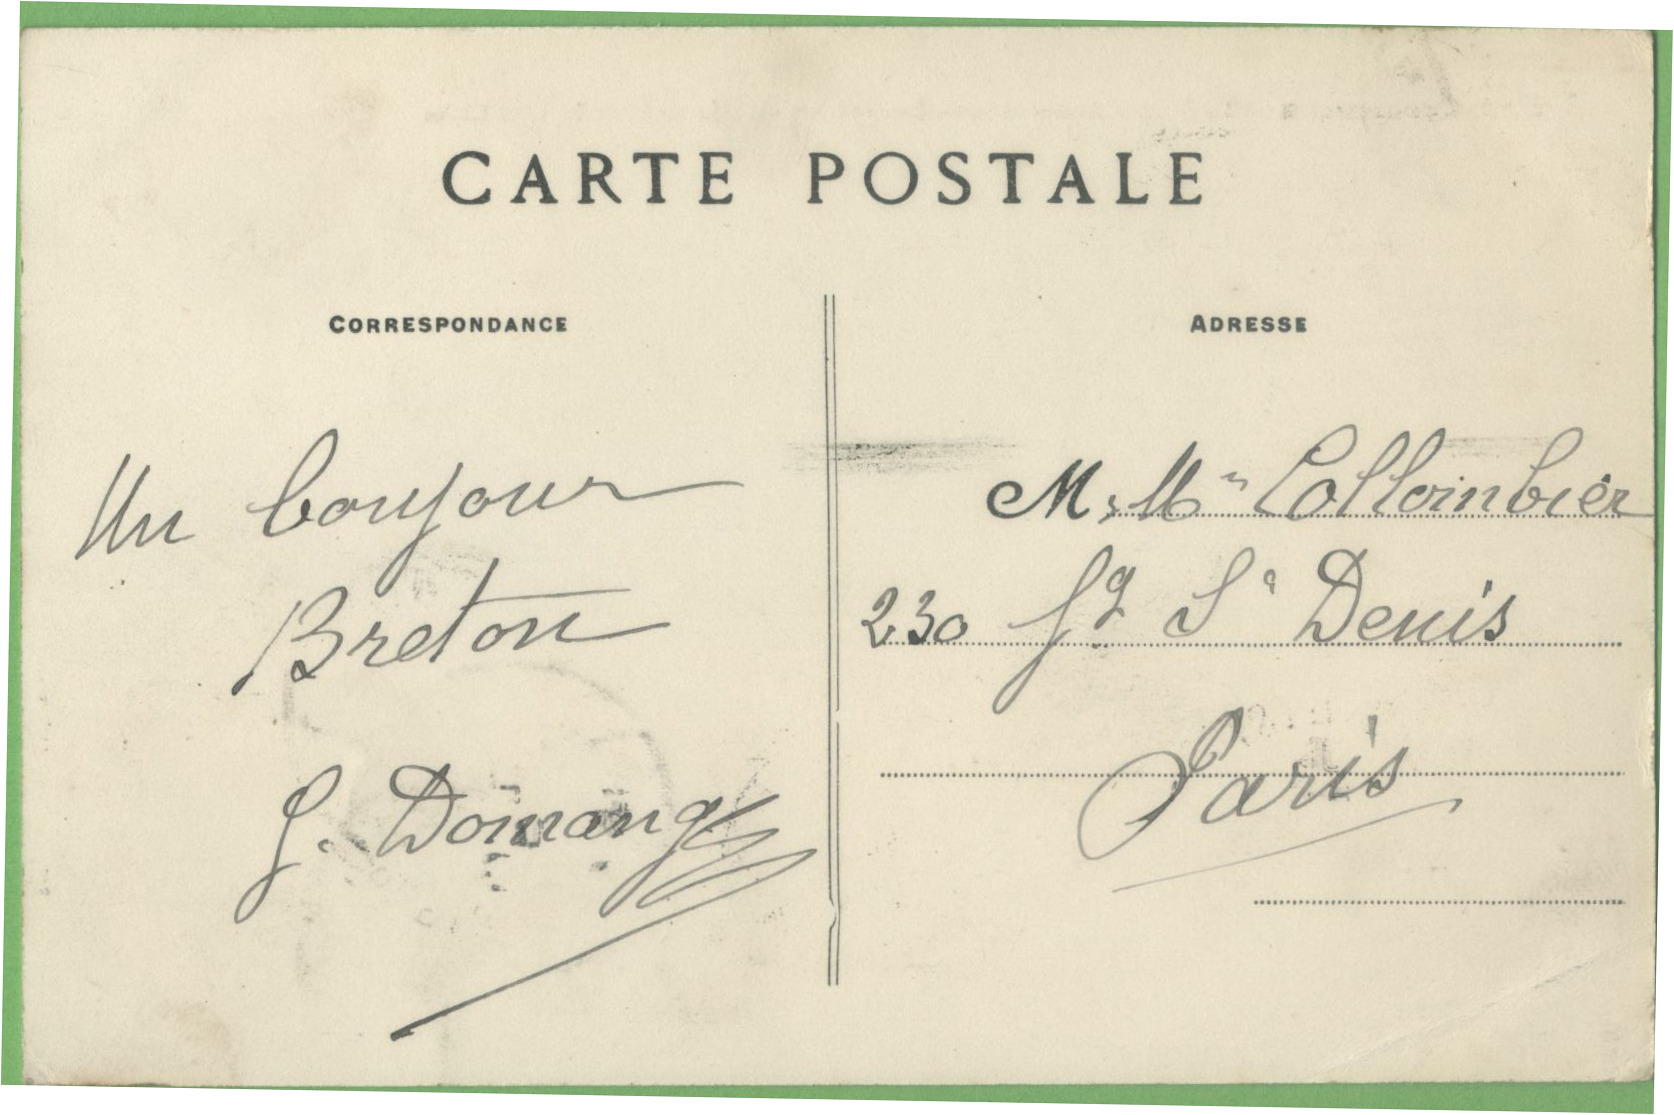 CARTE POSTALE
CORRESPONDANCE
Un bonjour
Breton
J. Domange
ADRESSE
M. Mm Collombier
230 fg St Denis
Paris